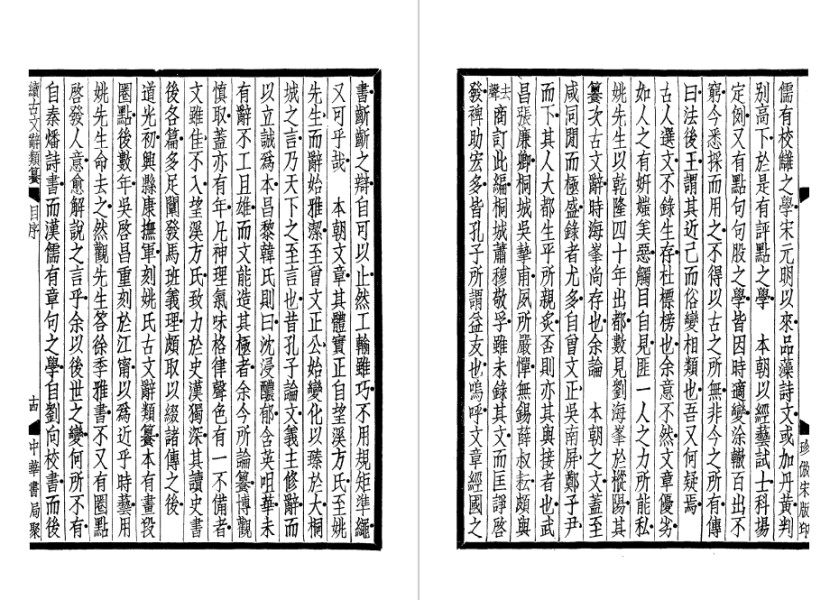 書齗齗之辯自可以止然工輸雖巧不用規矩準繩
又可乎哉　本朝文章其體實正自望溪方氏至姚
先生而辭始雅潔至曾文正公始變化以臻於大桐
城之言乃天下之至言也昔孔子論文義主修辭而
以立誠爲本昌黎韓氏則曰沈浸醲郁含英咀華未
有辭不工且雄而文能造其極者余今所論纂博觀
愼取蓋亦有年凡神理氣味格律聲色有一不備者
文雖佳不入望溪方氏致力於史漢獨深其讀史書
後各篇多足闡發馬班義理頗取以綴諸傳之後
道光初興縣康撫軍刻姚氏古文辭類纂本有畫段
圈點後數年吳啓昌重刻於江甯以爲近乎時藝用
姚先生命去之然觀先生答徐季雅書不又有圈點
啓發人意愈解說之言乎余以後世之變何所不有
自秦燔詩書而漢儒有章句之學自劉向校書而後
續古文辭類纂　目序　十四　中華書局聚
珍倣宋版印
儒有校讎之學宋元明以來品藻詩文或加丹黃判
別高下於是有評點之學　本朝以經藝試士科場
定例又有點句句股之學皆因時適變涂轍百出不
窮今悉採而用之不得以古之所無非今之所有傳
曰法後王謂其近己而俗變相類也吾又何疑焉
古人選文不錄生存杜標榜也余意不然文章優劣
如人之有妍媸美惡觸目自見匪一人之力所能私
姚先生以乾隆四十年出都數見劉海峯於樅陽其
纂次古文辭時海峯尚存也余論　本朝之文蓋至
咸同閒而極盛錄者尤多自曾文正吳南屏鄭子尹
而下其人大都生平所親炙否則亦其與接者也武
昌張廉卿桐城吳摯甫夙所嚴憚無錫薛叔耘頗與
商訂此編桐城蕭穆敬孚雖未錄其文而匡諍啓去聲
發裨助宏多皆孔子所謂益友也嗚呼文章經國之